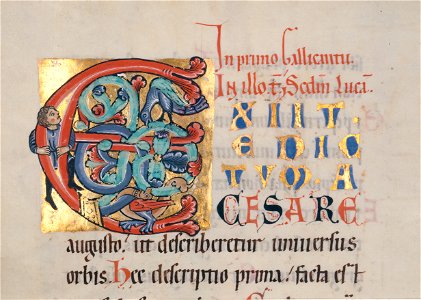 In primo Gallicantu.
In illo t̄. Scdm Lucā.
EXIIT
EDIC
TVM A
CESARE
augusto. ut describeretur uniuersus
orbis. Hec descriptio prima / facta est